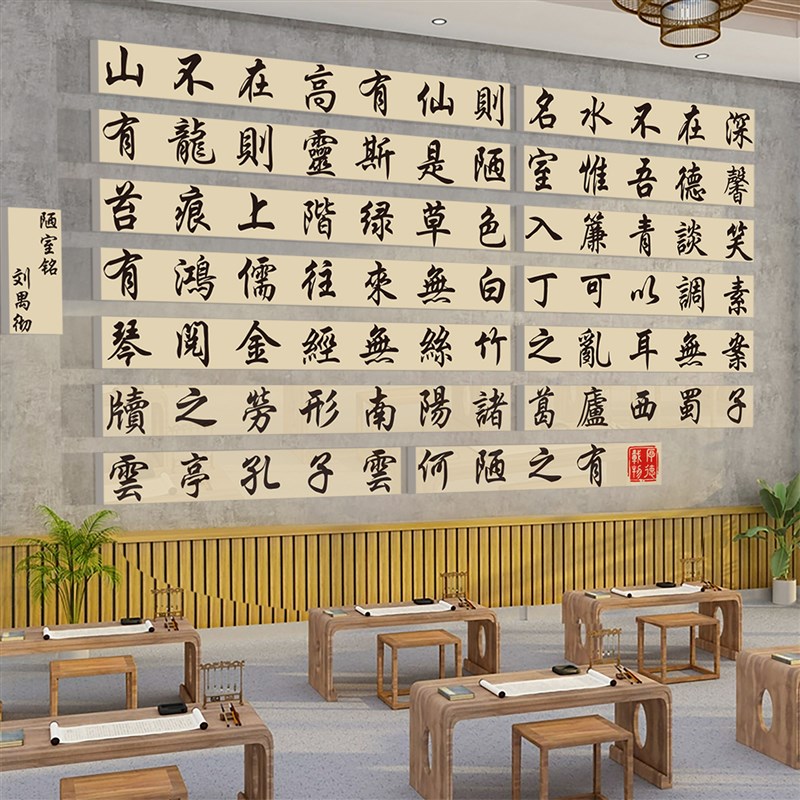 陋室铭
刘
山不在高有仙則 名水不在深
有龍則靈斯是陋 室惟吾德馨
苔痕上階绿草色 入簾青談笑
有鴻儒往來無白 丁可以調素
琴閲金經無絲竹 之亂耳無案
牘之勞形南陽諸 葛廬西蜀子
雲亭孔子雲 何陋之有
厚德
載物